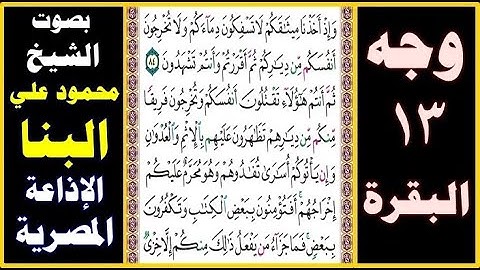 وجه
١٣
البقرة
وَإِذْ أَخَذْنَا مِيثَٰقَكُمْ لَا تَسْفِكُونَ دِمَآءَكُمْ وَلَا تُخْرِجُونَ
أَنفُسَكُم مِّن دِيَٰرِكُمْ ثُمَّ أَقْرَرْتُمْ وَأَنتُمْ تَشْهَدُونَ ٨٤
ثُمَّ أَنتُمْ هَٰٓؤُلَآءِ تَقْتُلُونَ أَنفُسَكُمْ وَتُخْرِجُونَ فَرِيقًا
مِّنكُم مِّن دِيَٰرِهِمْ تَظَٰهَرُونَ عَلَيْهِم بِٱلْإِثْمِ وَٱلْعُدْوَٰنِ
وَإِن يَأْتُوكُمْ أُسَٰرَىٰ تُفَٰدُوهُمْ وَهُوَ مُحَرَّمٌ عَلَيْكُمْ
إِخْرَاجُهُمْ أَفَتُؤْمِنُونَ بِبَعْضِ ٱلْكِتَٰبِ وَتَكْفُرُونَ
بِبَعْضٍ فَمَا جَزَآءُ مَن يَفْعَلُ ذَٰلِكَ مِنكُمْ إِلَّا خِزْىٌ
بصوت
الشيخ
محمود علي
البنا
الإذاعة
المصرية